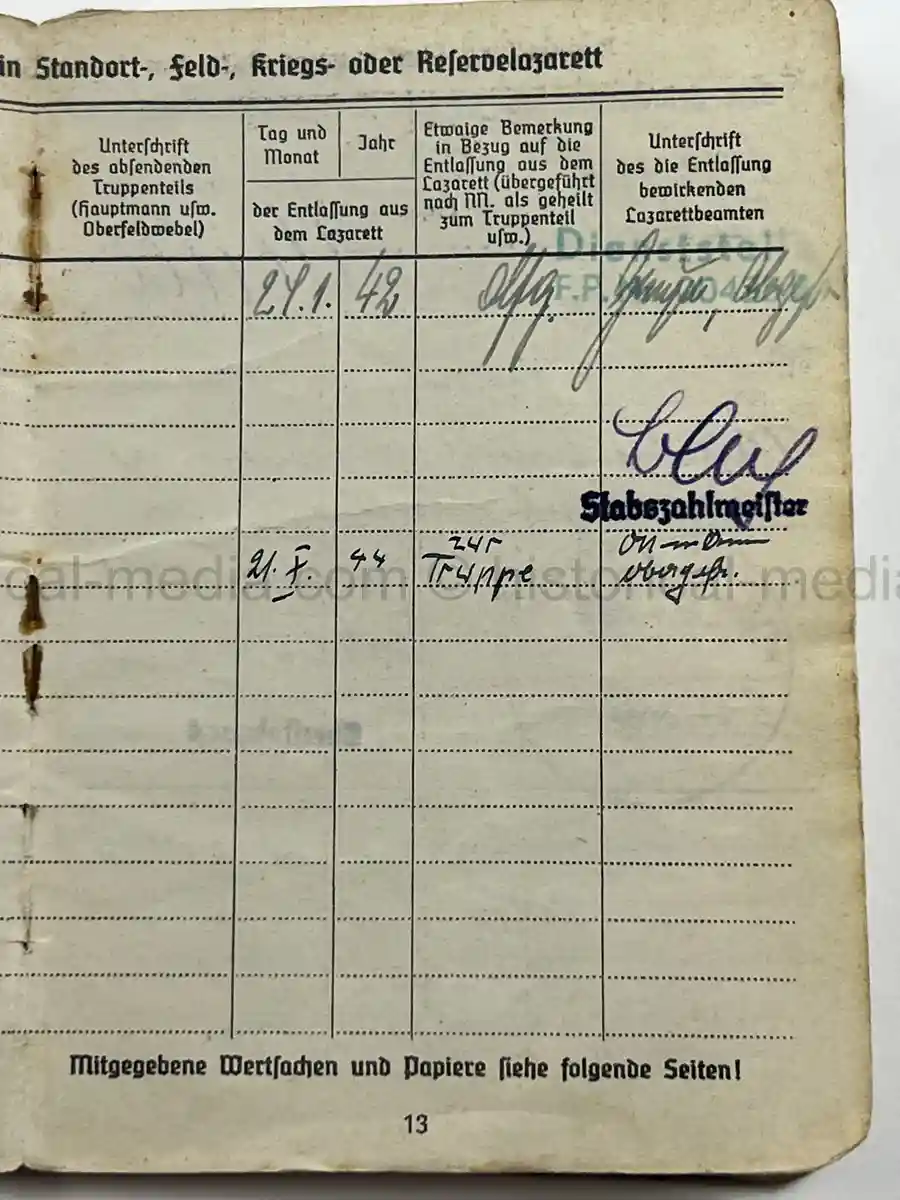 in Standort-, Feld-, Kriegs- oder Reservelazarett
Unterschrift
des absendenden
Truppenteils
(Hauptmann usw.
Oberfeldwebel)
Tag und
Monat
Jahr
der Entlassung aus
dem Lazarett
Etwaige Bemerkung
in Bezug auf die
Entlassung aus dem
Lazarett (übergeführt
nach NN. als geheilt
zum Truppenteil
usw.)
Unterschrift
des die Entlassung
bewirkenden
Lazarettbeamten
Dienststel
F.P.
42
Stabszahlmeister
21. X. 44 zur
Truppe
Obergefr.
Mitgegebene Wertsachen und Papiere siehe folgende Seiten!
13